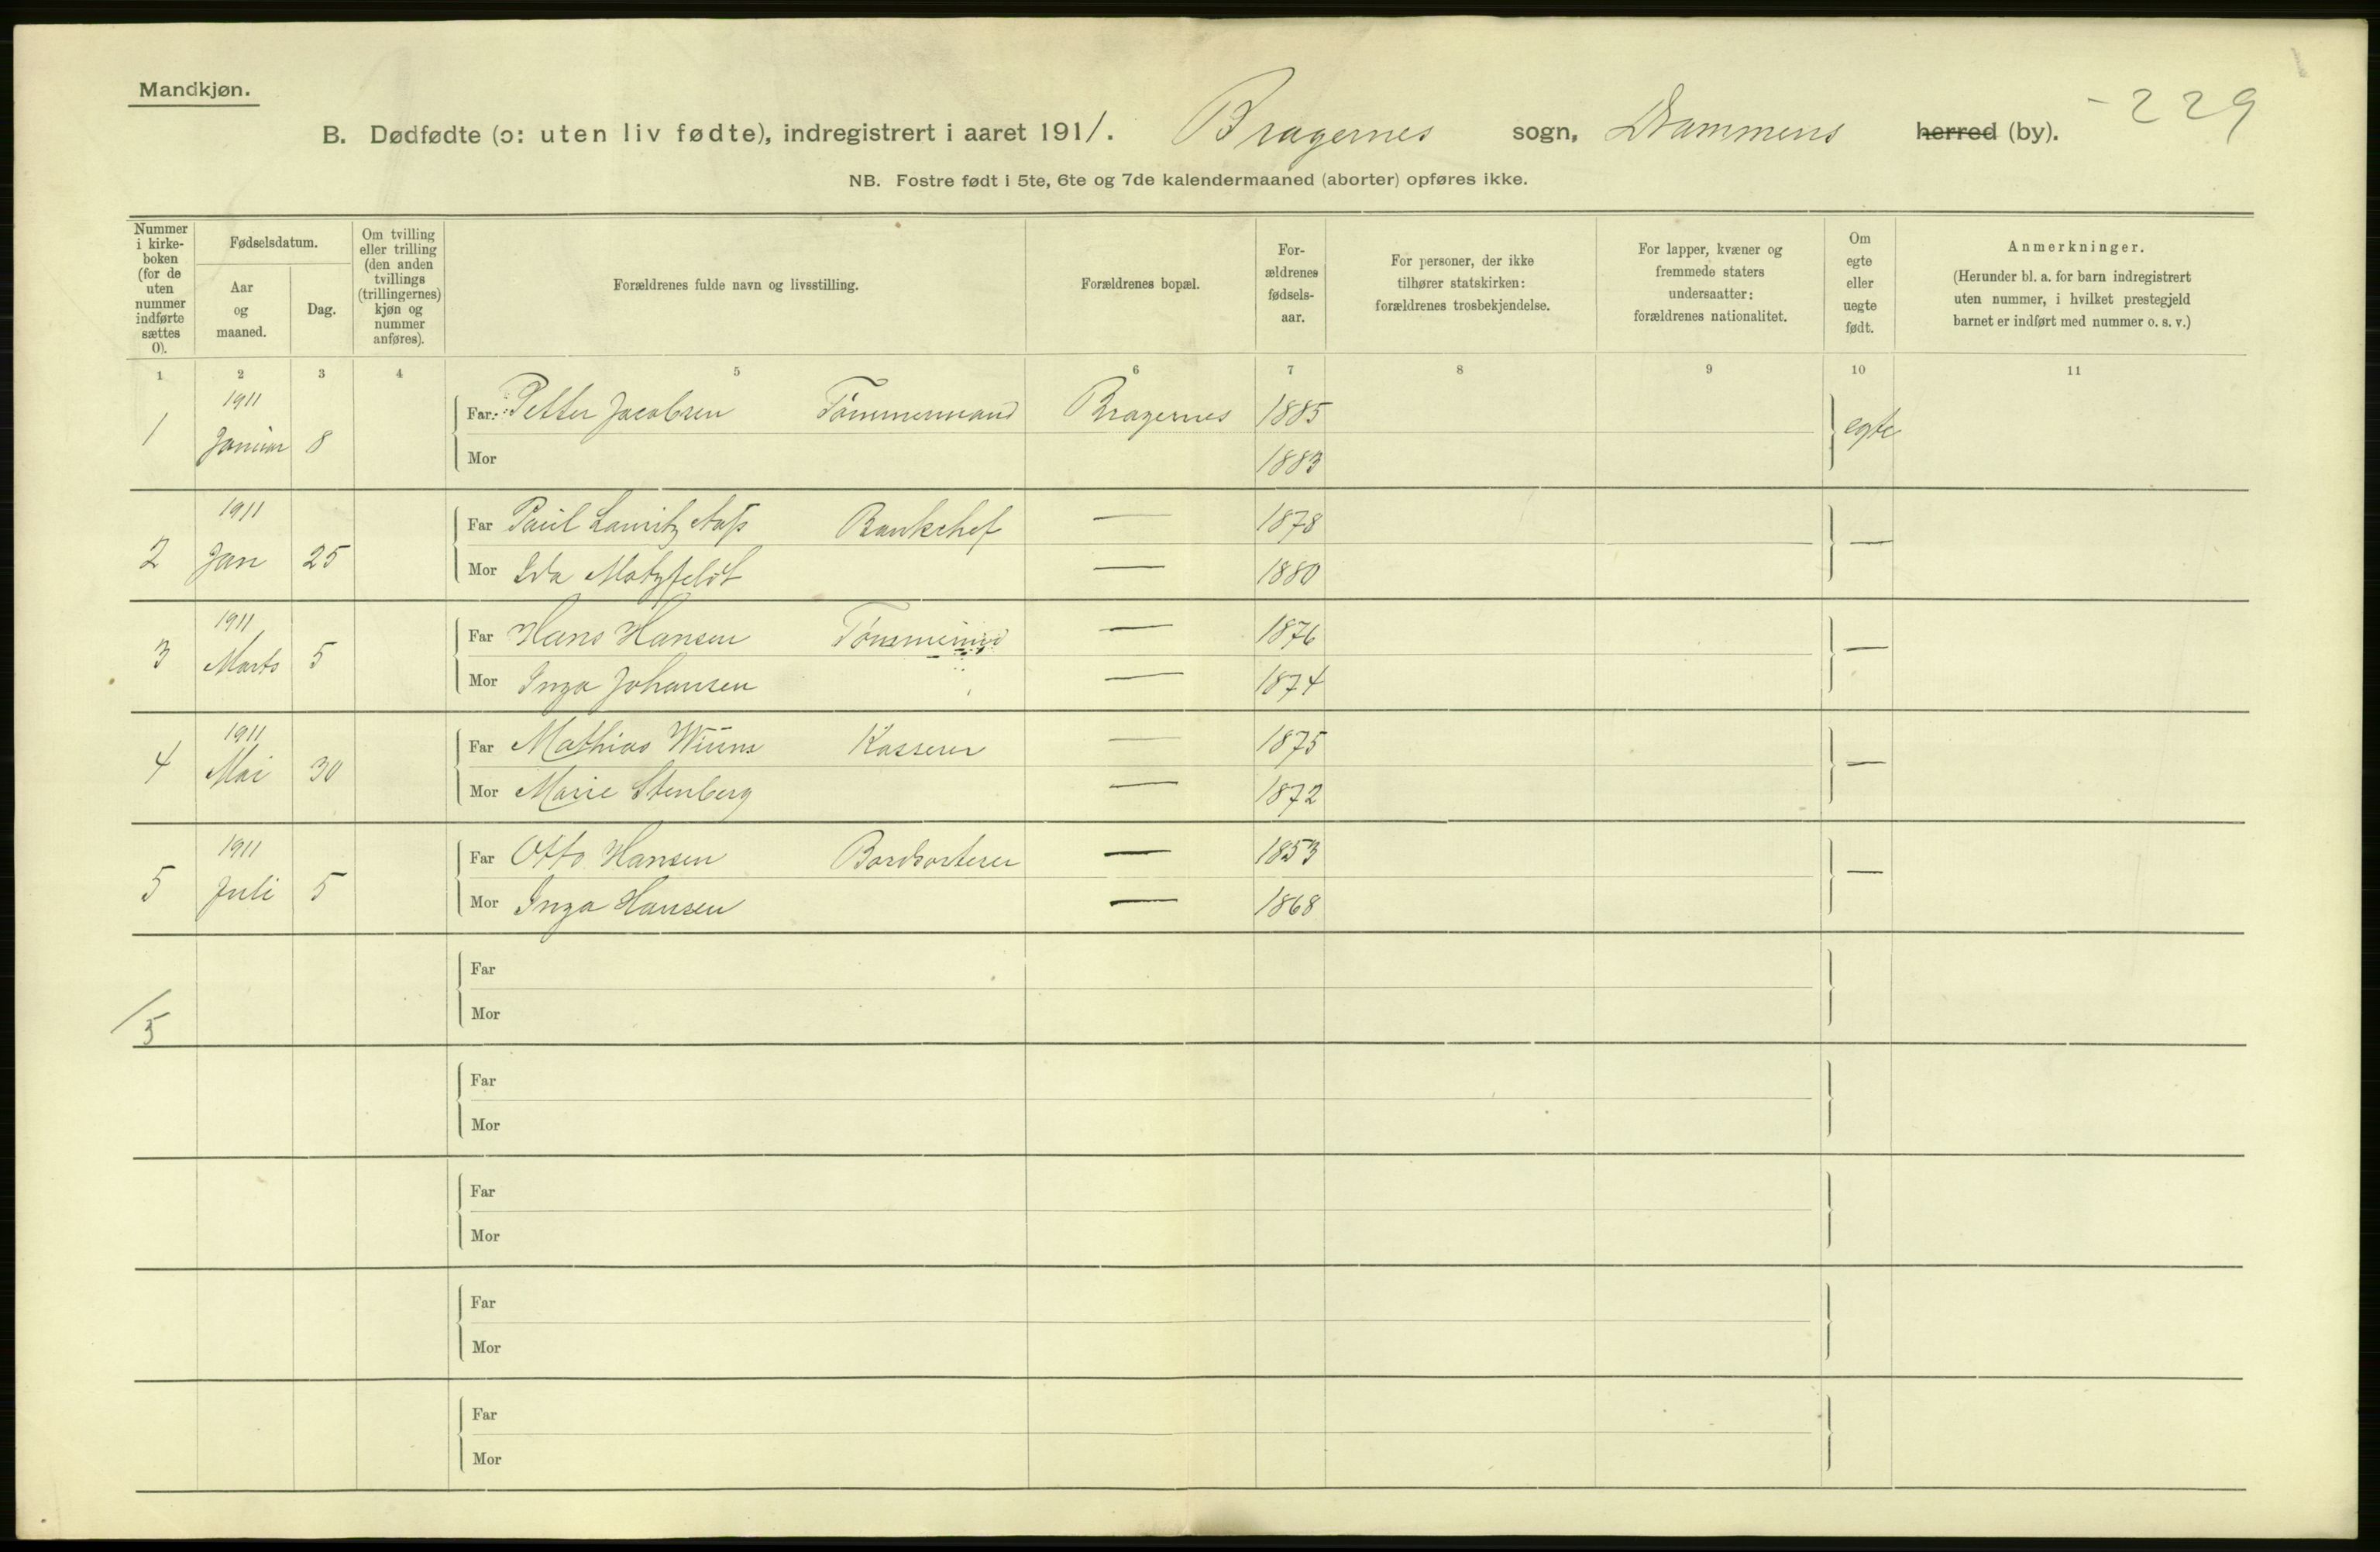 Mandkjøn.
- 229
B. Dødfødte (ɔ: uten liv fødte), indregistrert i aaret 1911. Bragernes sogn, Drammens herred (by).
NB. Fostre født i 5te, 6te og 7de kalendermaaned (aborter) opføres ikke.
Nummer i kirke-boken (for de uten nummer indførte sættes 0).
Fødselsdatum.
Aar og maaned.
Dag.
Om tvilling eller trilling (den anden tvillings (trillingernes) kjøn og nummer anføres).
Forældrenes fulde navn og livsstilling.
Forældrenes bopæl.
For-ældrenes fødsels-aar.
For personer, der ikke tilhører statskirken: forældrenes trosbekjendelse.
For lapper, kvæner og fremmede staters undersaatter: forældrenes nationalitet.
Om egte eller uegte født.
Anmerkninger.
(Herunder bl. a. for barn indregistrert uten nummer, i hvilket prestegjeld barnet er indført med nummer o. s. v.)
1 2 3 4 5 6 7 8 9 10 11
1 1911 Januar 8 Far: Petter Jacobsen Tömmermand Bragernes 1885 egte
Mor 1883
2 1911 Jan 25 Far Paul Lauritz Bankchef — 1878 —
Mor Ida Motzfeldt — 1880
3 1911 Marts 5 Far Hans Hansen — 1876 —
Mor Inga Johansen — 1874
4 1911 Mai 30 Far Mathias Kasserer — 1875 —
Mor Marie Stenberg — 1872
5 1911 Juli 5 Far Otto Hansen Bordsorterer — 1853 —
Mor Inga Hansen — 1868
Far
Mor
/5
Far
Mor
Far
Mor
Far
Mor
Far
Mor